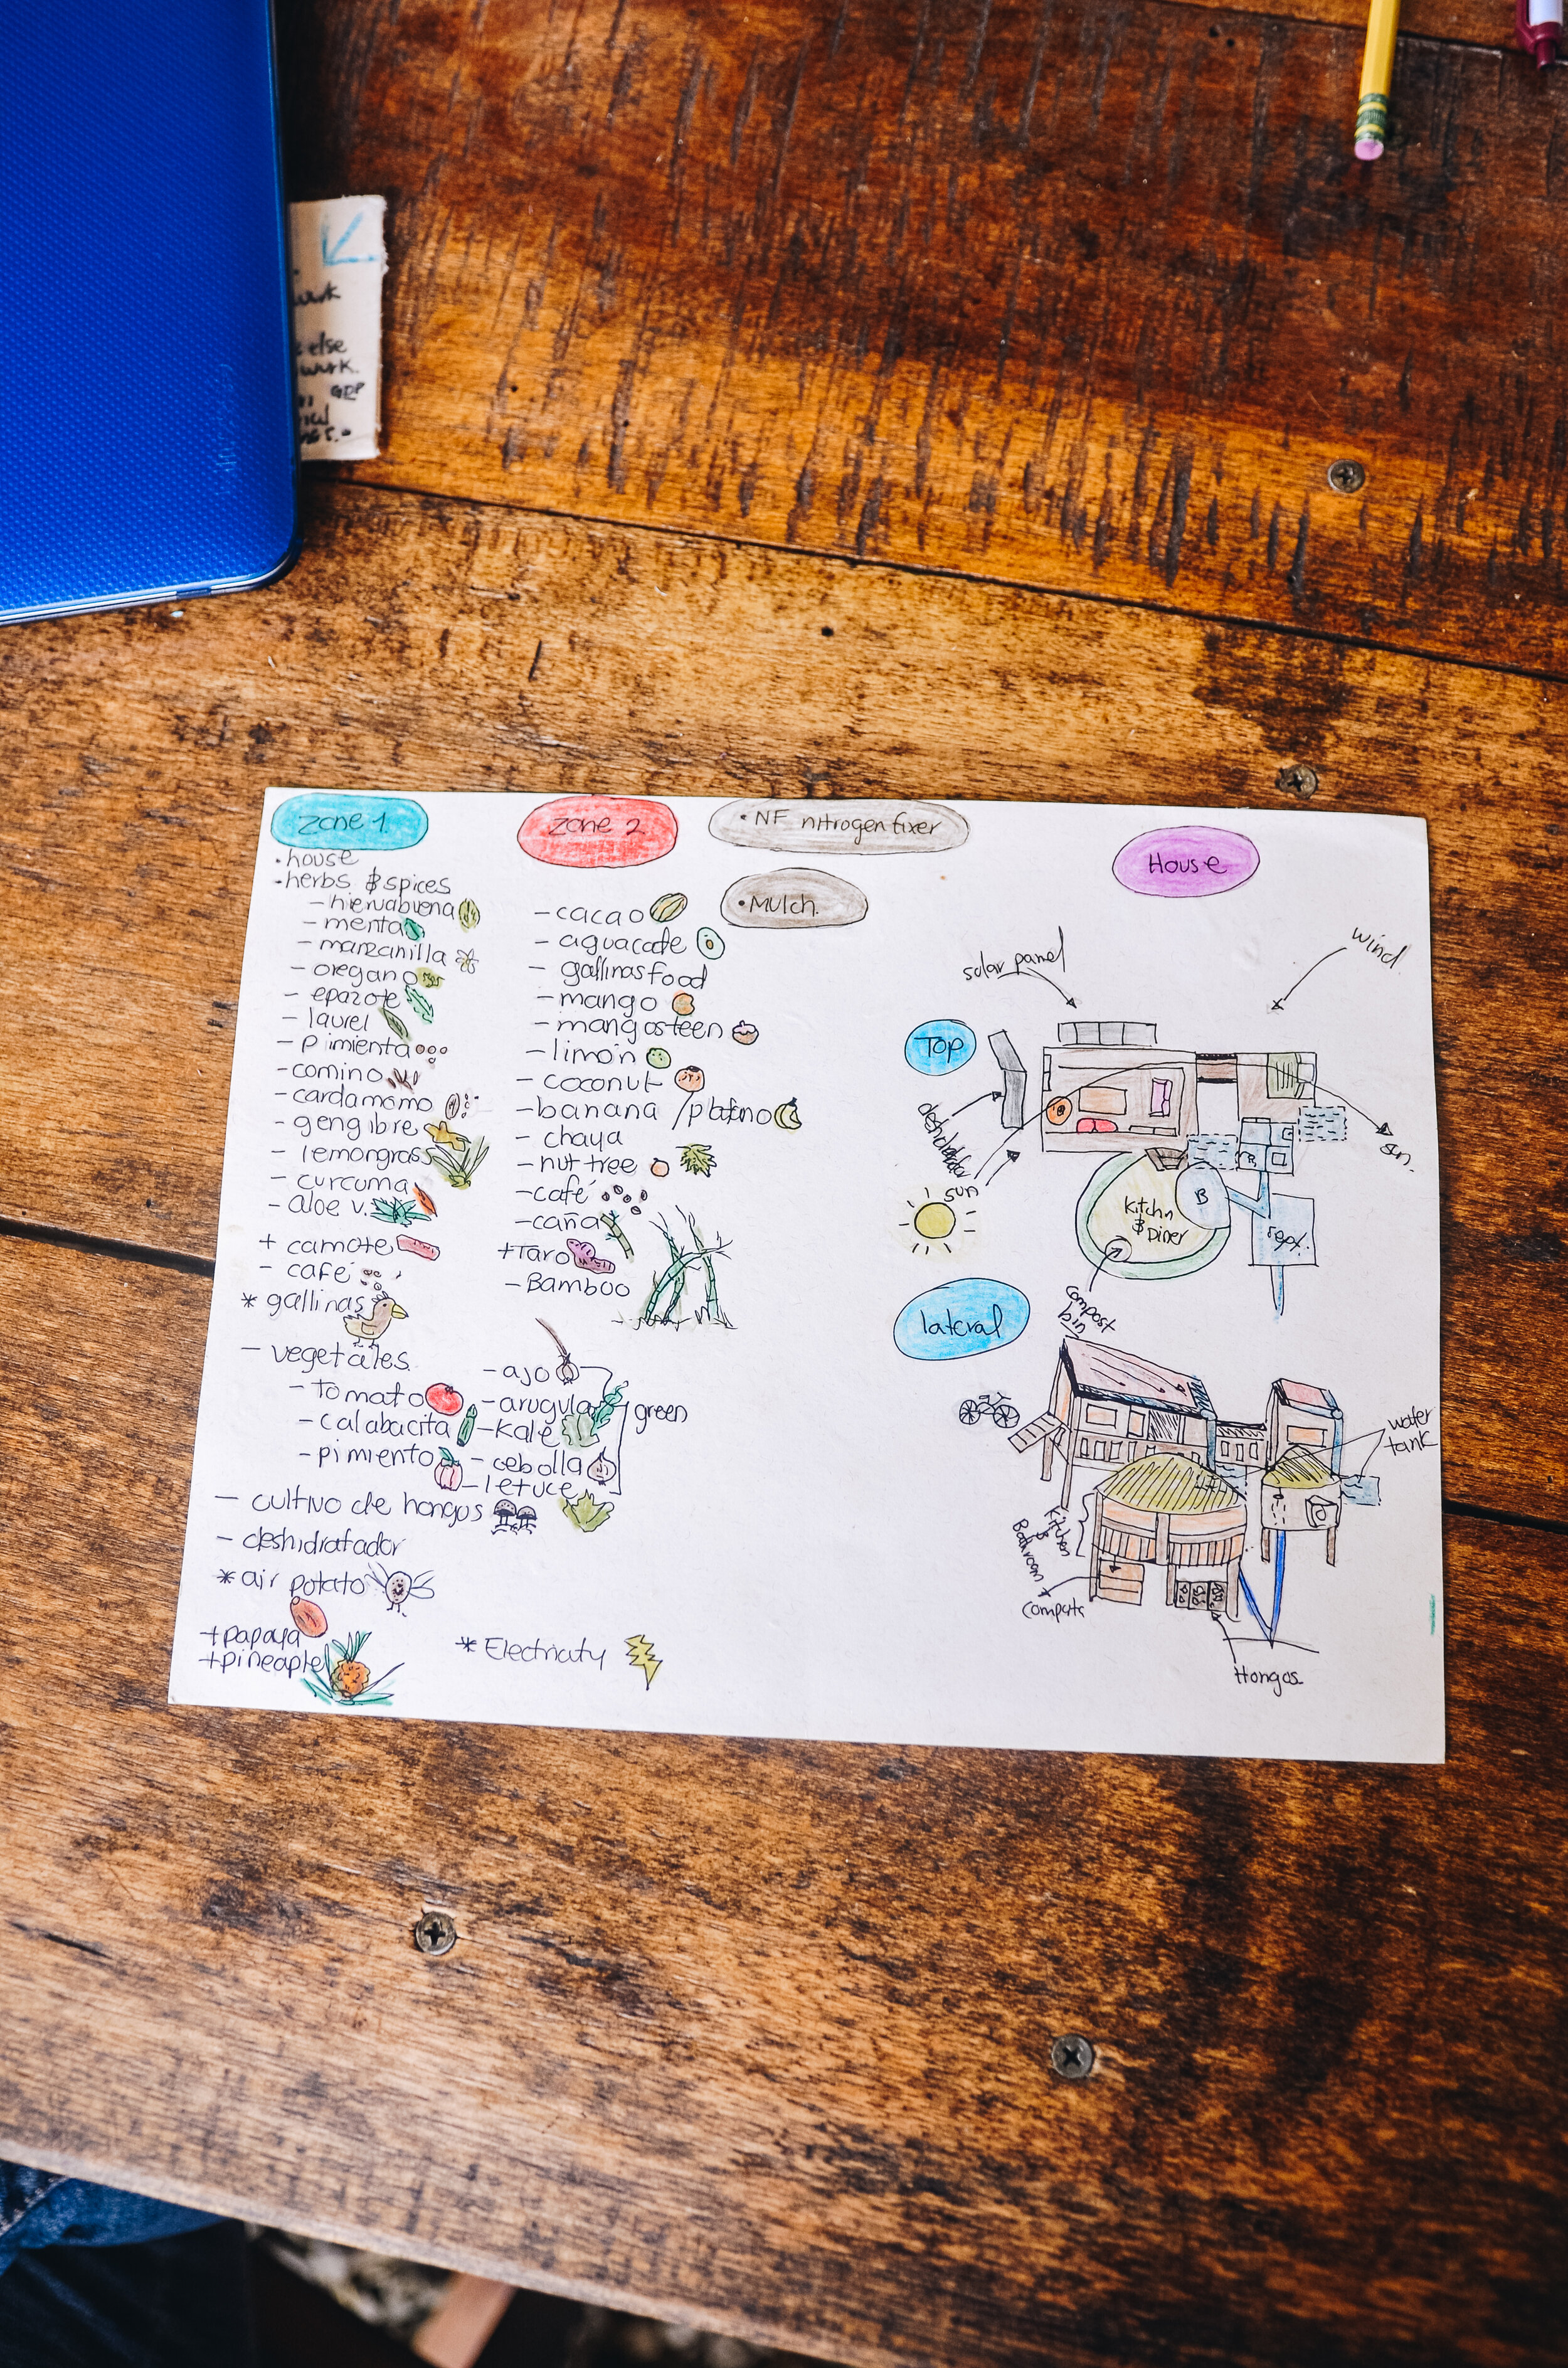 work
else
work.
GDP
zone 1
• house
• herbs & spices
- hiervabuena
- menta
- manzanilla
- oregano
- epazote
- laurel
- pimienta
- comino
- cardamomo
- gengibre
- lemongrass
- curcuma
- aloe v.
+ camote
- café
* gallinas
- vegetales
- tomato
- calabacita
- pimiento
- ajo
- arugula
- kale
- cebolla
- letuce
green
- cultivo de hongos
- deshidratador
* air potato
+ papaya
+ pineaple
* Electricity
zone 2
- cacao
- aguacate
- gallinas food
- mango
- mangosteen
- limón
- coconut
- banana / platano
- chaya
- nut tree
- café
- caña
+ Taro
- Bamboo
• NF nitrogen fixer
• Mulch.
House
solar panel
wind
Top
deshidratador
sun
sun.
Kitchn
& Diner
B
compost
bin
lateral
water
tank
Kitchen
&
Bathroom
Hongos